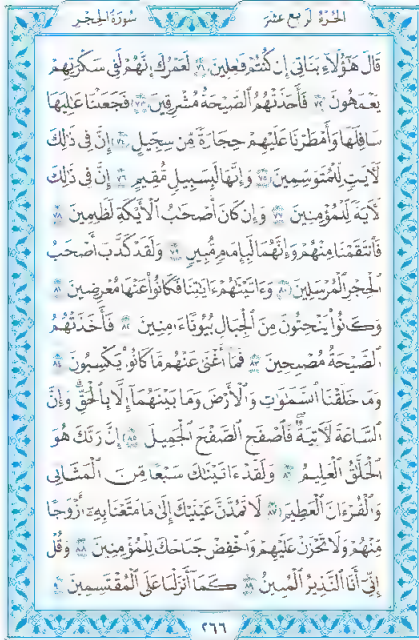 سُورَةُ الحِجْرِ الجُزْءُ الرَّابِعَ عَشَرَ
قَالَ هَٰؤُلَاءِ بَنَاتِي إِن كُنتُمْ فَاعِلِينَ ٧١ لَعَمْرُكَ إِنَّهُمْ لَفِي سَكْرَتِهِمْ
يَعْمَهُونَ ٧٢ فَأَخَذَتْهُمُ الصَّيْحَةُ مُشْرِقِينَ ٧٣ فَجَعَلْنَا عَالِيَهَا
سَافِلَهَا وَأَمْطَرْنَا عَلَيْهِمْ حِجَارَةً مِّن سِجِّيلٍ ٧٤ إِنَّ فِي ذَٰلِكَ
لَآيَاتٍ لِّلْمُتَوَسِّمِينَ ٧٥ وَإِنَّهَا لَبِسَبِيلٍ مُّقِيمٍ ٧٦ إِنَّ فِي ذَٰلِكَ
لَآيَةً لِّلْمُؤْمِنِينَ ٧٧ وَإِن كَانَ أَصْحَابُ الْأَيْكَةِ لَظَالِمِينَ ٧٨
فَانتَقَمْنَا مِنْهُمْ وَإِنَّهُمَا لَبِإِمَامٍ مُّبِينٍ ٧٩ وَلَقَدْ كَذَّبَ أَصْحَابُ
الْحِجْرِ الْمُرْسَلِينَ ٨٠ وَآتَيْنَاهُمْ آيَاتِنَا فَكَانُوا عَنْهَا مُعْرِضِينَ ٨١
وَكَانُوا يَنْحِتُونَ مِنَ الْجِبَالِ بُيُوتًا آمِنِينَ ٨٢ فَأَخَذَتْهُمُ
الصَّيْحَةُ مُصْبِحِينَ ٨٣ فَمَا أَغْنَىٰ عَنْهُم مَّا كَانُوا يَكْسِبُونَ ٨٤
وَمَا خَلَقْنَا السَّمَاوَاتِ وَالْأَرْضَ وَمَا بَيْنَهُمَا إِلَّا بِالْحَقِّ ۗ وَإِنَّ
السَّاعَةَ لَآتِيَةٌ ۖ فَاصْفَحِ الصَّفْحَ الْجَمِيلَ ٨٥ إِنَّ رَبَّكَ هُوَ
الْخَلَّاقُ الْعَلِيمُ ٨٦ وَلَقَدْ آتَيْنَاكَ سَبْعًا مِّنَ الْمَثَانِي
وَالْقُرْآنَ الْعَظِيمَ ٨٧ لَا تَمُدَّنَّ عَيْنَيْكَ إِلَىٰ مَا مَتَّعْنَا بِهِ أَزْوَاجًا
مِّنْهُمْ وَلَا تَحْزَنْ عَلَيْهِمْ وَاخْفِضْ جَنَاحَكَ لِلْمُؤْمِنِينَ ٨٨ وَقُلْ
إِنِّي أَنَا النَّذِيرُ الْمُبِينُ ٨٩ كَمَا أَنزَلْنَا عَلَى الْمُقْتَسِمِينَ ٩٠
٢٦٦